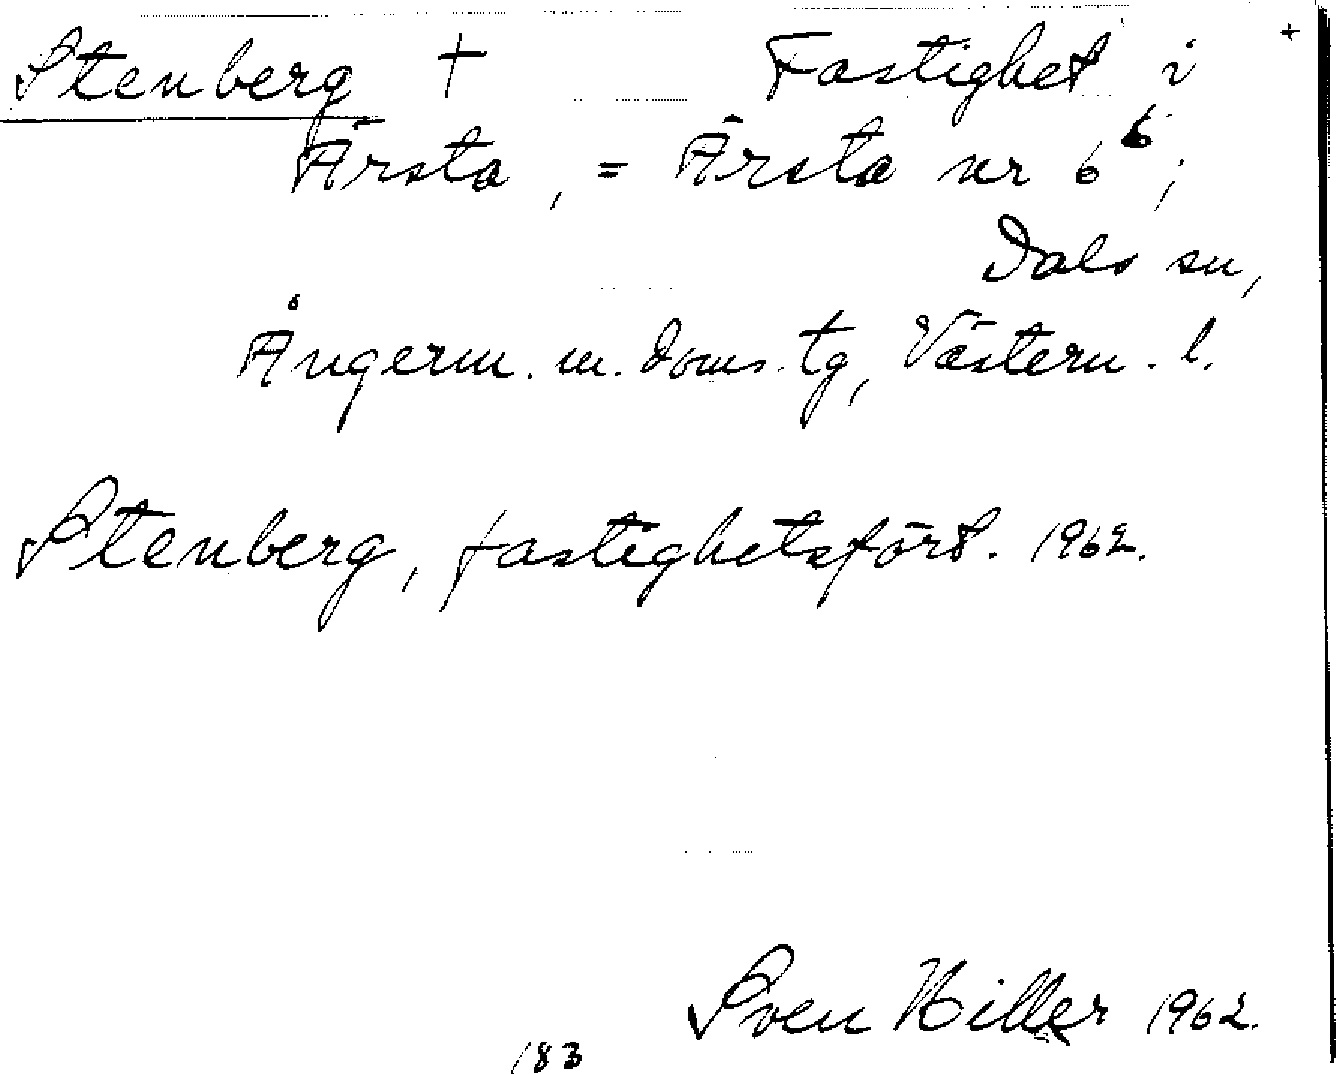 Stenberg † Fastighet i +
Ärsta, = Ärsta nr 6⁶;
Dals sn,
Ångerm. m. doms. tg, Västern. l.
Stenberg, fastighetsförd. 1962.
Sven Hiller 1962.
183